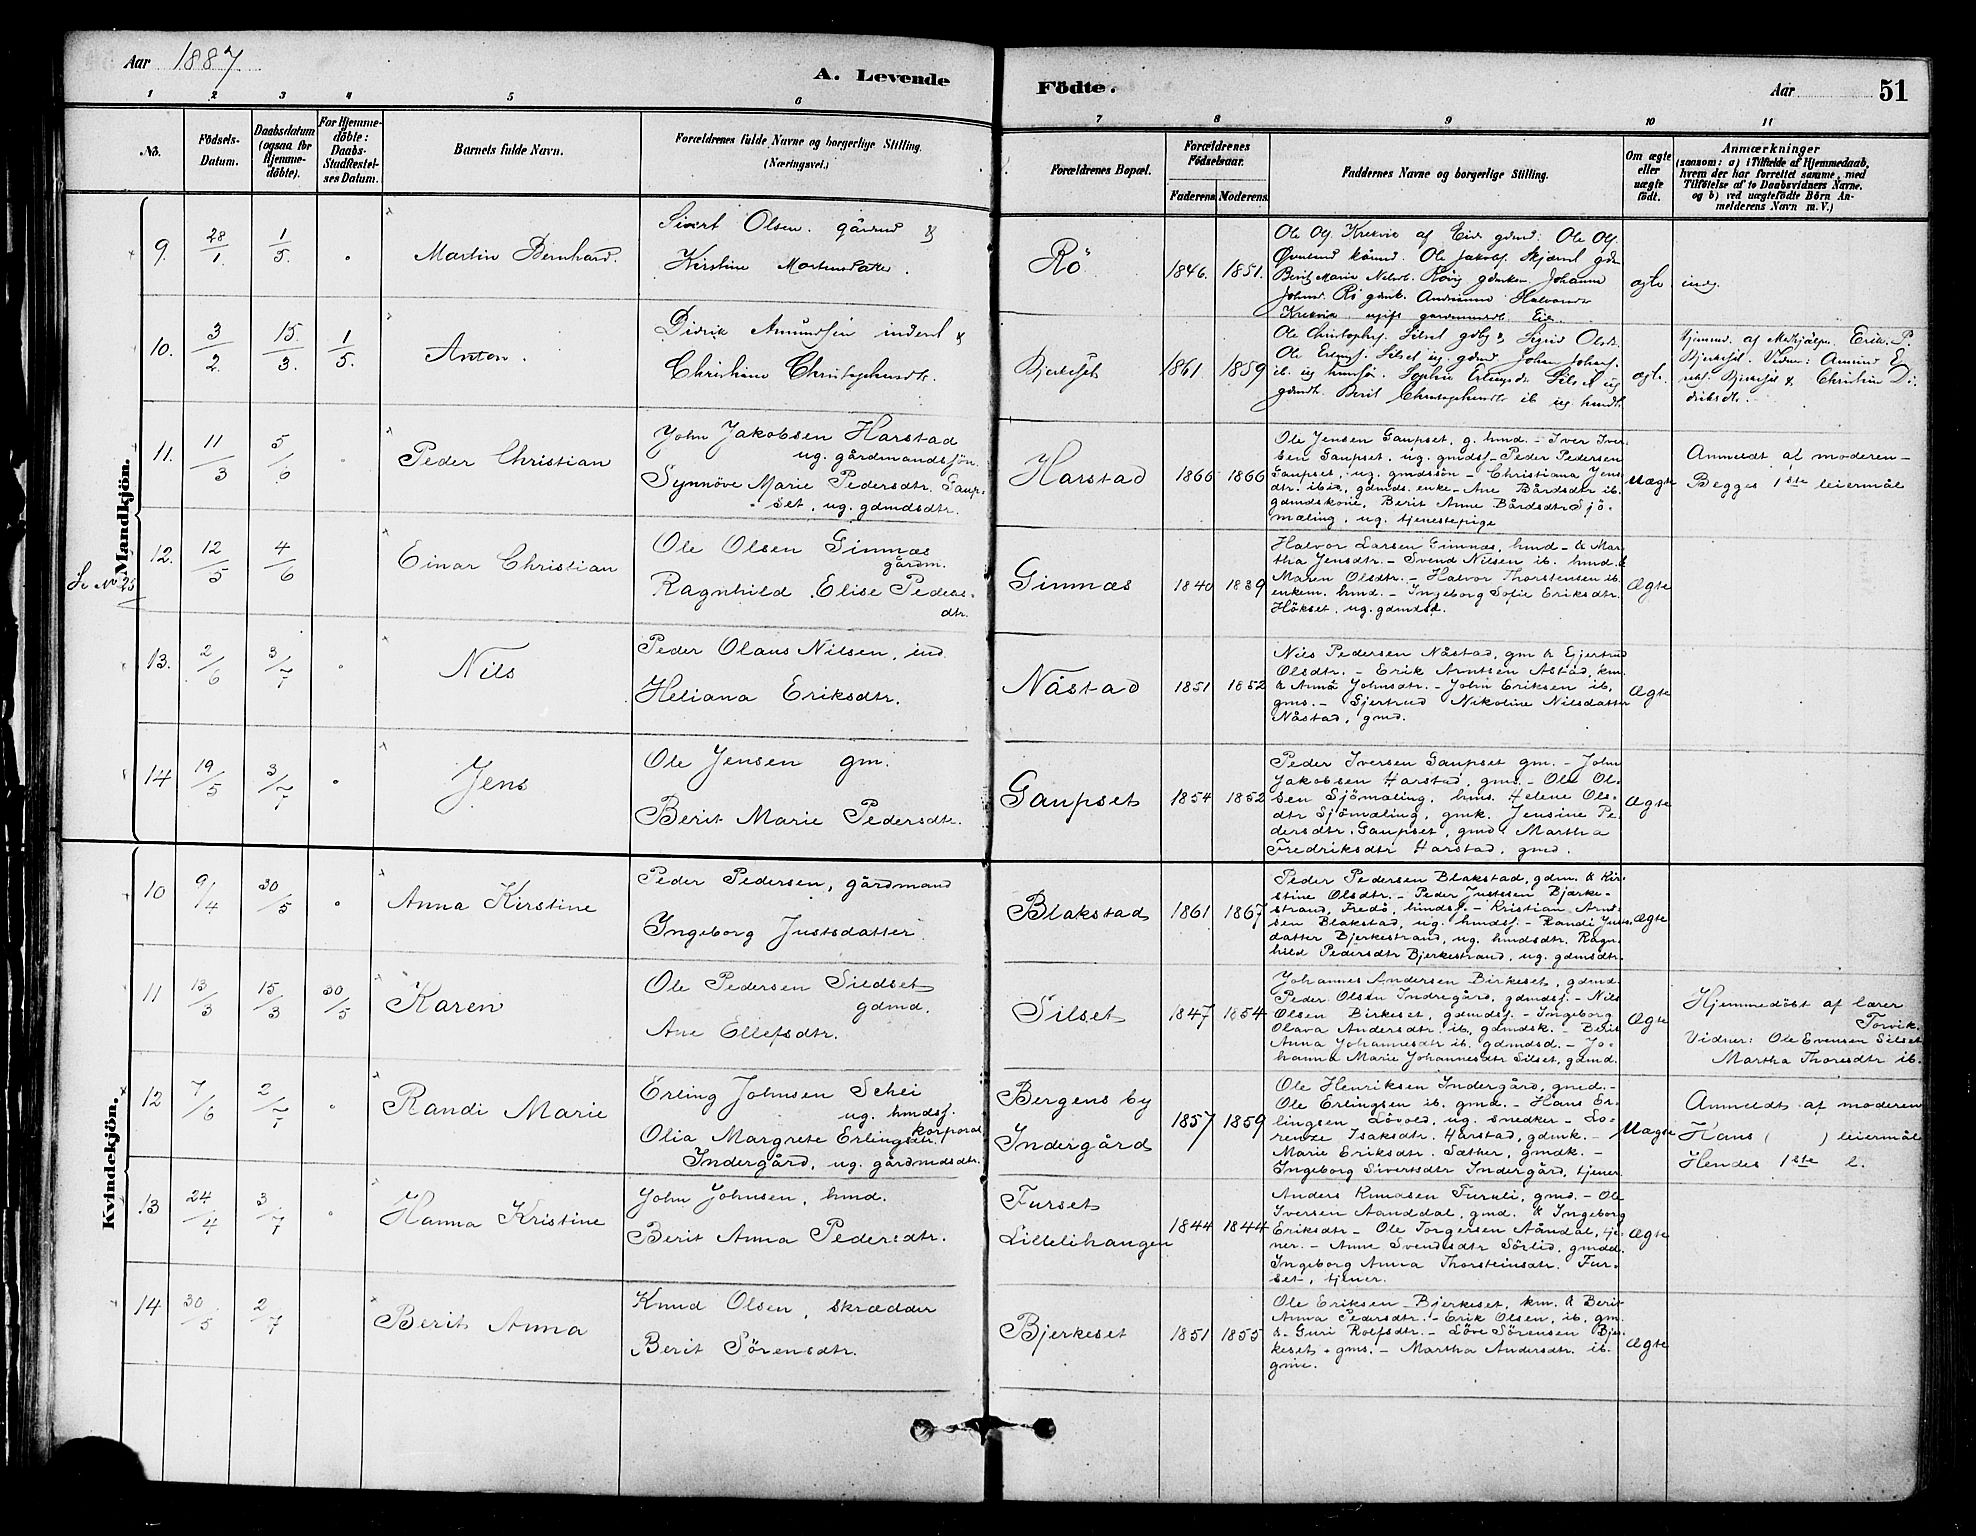 Aar 1887
A. Levende
Födte.
Aar
51
1 2 3 4 5 6 7 8 9 10 11
No.
Födsels-
Datum.
Daabsdatum
(ogsaa for
Hjemme-
döbte).
For Hjemme-
döbte:
Daabs-
Stadfæstel-
ses Datum.
Barnets fulde Navn.
Forældrenes fulde Navne og borgerlige Stilling.
(Næringsvei.)
Forældrenes Bopæl.
Forældrenes
Födselsaar.
Faderens Moderens.
Faddernes Navne og borgerlige Stilling.
Om ægte
eller
uægte
födt.
Anmærkninger
(saasom: a) i Tilfælde af Hjemmedaab,
hvem der har forrettet samme, med
Tilföielse af to Daabsvidners Navne.
og b) ved uægtefödte Börn An-
melderens Navn m. V.)
Mandkjön.
9. 28/1. 1/5. Martin Bernhard.
Sivert Olsen. gårmd &
Kirstine Mortensdatter.
Rö 1846. 1851.
Ole Ols. Krekvik af Eide gdmd. Ole Ols.
Ole Jakobs.
Berit Marie Nilsd. Johanne
Johnsd. Rö gdmk.
Krekvik ugift gardmandsdt. Eide.
ægte
10. 3/2. 15/3. 1/5 Anton.
Didrik Amundsen inderst &
Christiane Christophersdt.
Bjerkeset 1861. 1859
Ole Christophers. Silset gdbg & Sigrid Olsdt.
Ole Erlings. Silset ug. gdmd Johan Johans.
ib. ug Sophie Erlingsdt Silset ug
gdmdt. Berit Christophersdt ib ug hmdt.
ægte
Hjemmed. af Medhjælper Erik P.
Bjerkeset. Vidner: Amund E-
riks. Bjerkeset & Christine Di-
driksdt.
11. 11/3 5/6 Peder Christian
John Jakobsen Harstad
ug. gårdmandssön.
Synnöve Marie Pedersdtr. Gaup-
set, ug. gdmdsdtr.
Harstad 1866 1866
Ole Jensen Gaupset, g. hmd. - Iver Iver-
sen Gaupset, ug. gmdss - Peder Pedersen
Gaupset, ug. gmdssön - Christiana Jens-
dtr. ibid, gdmds. enke - Ane Bårdsdtr ib.
gdmdskone, Berit Anne Bårdsdtr Sjö-
mæling, ug. tjenestepige
Uægte
Anmeldt af moderen -
Begges 1ste leiermål
Se No 25
12. 12/5 4/6 Einar Christian
Ole Olsen Gimnæs
gårdm.
Ragnhild Elise Peders-
dtr.
Gimnæs 1840 1839
Halvor Larsen Gimnæs, hmd - & Mar-
tha Jensdtr. - Svend Nilsen ib. hmd. &
Maren Olsdtr. - Halvor Thorstensen ib.
enkem. hmd. - Ingeborg Sofie Eriksdtr.
Hökset, ug. gdmdsd.
Ægte
13. 2/6 3/7 Nils
Peder Olaus Nilsen, ind.
Heliana Eriksdtr.
Nåstad 1851 1852
Nils Pedersen Nåstad, gm & Gjertrud
Olsdtr. - Erik Arntsen Åstad, km.
& Anna Johnsdtr. - John Eriksen ib,
gms. - Gjertrud Nikoline Nilsdatter
Nåstad, gmd.
Ægte
14 19/5 3/7 Jens
Ole Jensen gm.
Berit Marie Pedersdtr.
Gaupset 1854 1852
Peder Iversen Gaupset gm. - John
Jakobsen Harstad, gms. - Ole Ol-
sen Sjömæling, hms. Helene Ols-
dtr Sjömæling, gmk. Jensine Pe-
dersdtr. Gaupset, gmd. Martha
Fredriksdtr Harstad, gmd.
Ægte
Kvindekjön.
10 9/4 30/5 Anna Kirstine
Peder Pedersen, gårdmand
Ingeborg Justsdatter.
Blakstad 1861 1867
Peder Pedersen Blakstad, gdm. & Kir-
stine Olsdtr. - Peder Justsen Bjerke-
strand, Fredö, hmdss. - Kristian Arnt-
sen Blakstad, ug. hmdss. - Randi Justs-
datter Bjerkestrand, ug. hmdsdtr. Ragn-
hild Pedersdtr Bjerkestrand, ug. gdmsdtr.
Ægte
11 13/3 15/3 30/5 Karen
Ole Pedersen Sildset
gdmd.
Ane Ellefsdtr.
Silset 1847 1854
Johannes Andersen Birkeset, gdmd.
Peder Olsen Indregård, gdmdss. - Nils
Olsen Birkeset, gdmdss. - Ingeborg
Olava Andersdtr. ib, gdmdsk. - Berit
Anna Johannesdtr ib. gdmdsd. - Jo-
hanna Marie Johannesdtr Silset, gdmd.
Ægte
Hjemmedöbt af lærer
Torvik.
Vidner: Ole Evensen Silset
Martha Thoresdtr ib.
12 7/6 2/7 Randi Marie
Erling Johnsen Schei
ug. hmdss.
korporal
Olia Margrete Erlingsdtr.
Indergård, ug. gårdmdsdtr.
Bergens by
Indergård
1857 1859
Ole Henriksen Indergård, gmd. -
Ole Erlingsen ib. gmd. - Hans Er-
lingsen Lövold, ug. snedker - Lo-
rense Isaksdtr. Harstad, gdmk. -
Marie Eriksdtr. Sæther, gmdk. -
Ingeborg Sivertsdtr Indergård, tjener.
Uægte
Anmeldt af moderen
Hans ( ) leiermål
Hendes 1ste l.
13 24/4 3/7 Hanna Kristine
John Johnsen, hmd.
Berit Anna Pedersdtr.
Furset
Lillelihaugen
1844 1844
Anders Knudsen Furuli, gmd. - Ole
Iversen Aanddal, gmd. & Ingeborg
Eriksdtr - Ole Torgersen Aåndal, tje-
ner. - Anne Svendsdtr Sörlid, gmdd.
Ingeborg Anna Thorsteinsdtr. Fur-
set, tjener.
Ægte
14 30/5 2/7 Berit Anna
Knud Olsen, skrædder
Berit Sörensdtr.
Bjerkeset 1851 1855
Ole Eriksen Bjerkeset, km. & Berit
Anna Pedersdtr. - Erik Olsen, ib, gm.
& Guri Rolfsdtr. - Söve Sörensen Bjer-
keset, gms. - Martha Andersdtr. ib.
gmE.
Ægte